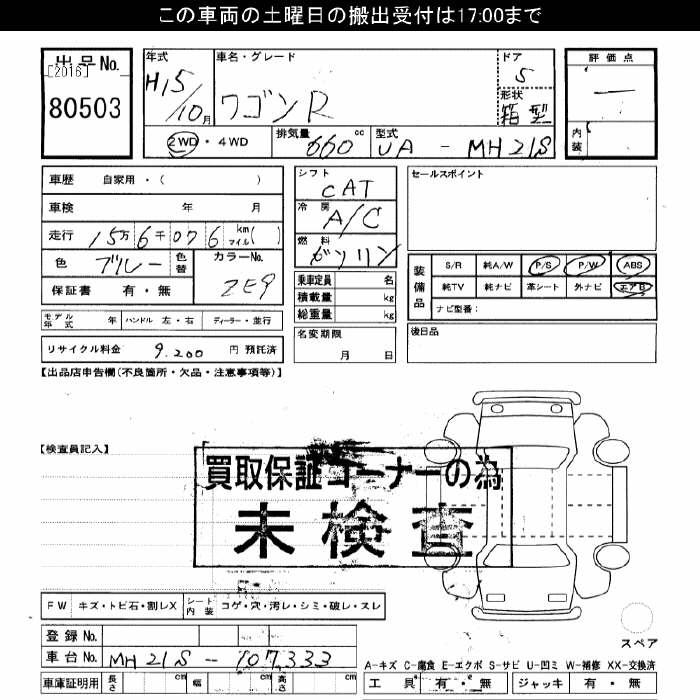 この車両の土曜日の搬出受付は17:00まで
出品No.
[2016]
80503
年式
H15/10月
車名・グレード
ワゴンR
ドア
5
形状
箱型
評価点
内装
2WD・4WD
排気量
660 cc
型式
UA - MH21S
車歴 自家用・( )
車検 年 月
走行 15万6千076 km マイル( )
色 ブルー
色替
カラーNo.
ZE9
保証書 有・無
モデル年式 年 ハンドル 左・右 ディーラー・並行
リサイクル料金 9.200 円 預託済
シフト
CAT
冷房
A/C
燃料
ガソリン
乗車定員 名
積載量 kg
総重量 kg
名変期限
月 日
セールスポイント
装備品
S/R 純A/W P/S P/W ABS
純TV 純ナビ 革シート 外ナビ エアB
ナビ型番:
後日品
【出品店申告欄(不良箇所・欠品・注意事項等)】
【検査員記入】
買取保証コーナーの為
未検査
FW キズ・トビ石・割レX
シート内装 コゲ・穴・汚レ・シミ・破レ・スレ
スペア
登録No.
車台No. MH21S - 107333
車庫証明用 長さ cm 幅 cm 高さ cm
A-キズ C-腐食 E-エクボ S-サビ U-凹ミ W-補修 XX-交換済
工具 有・無 ジャッキ 有・無